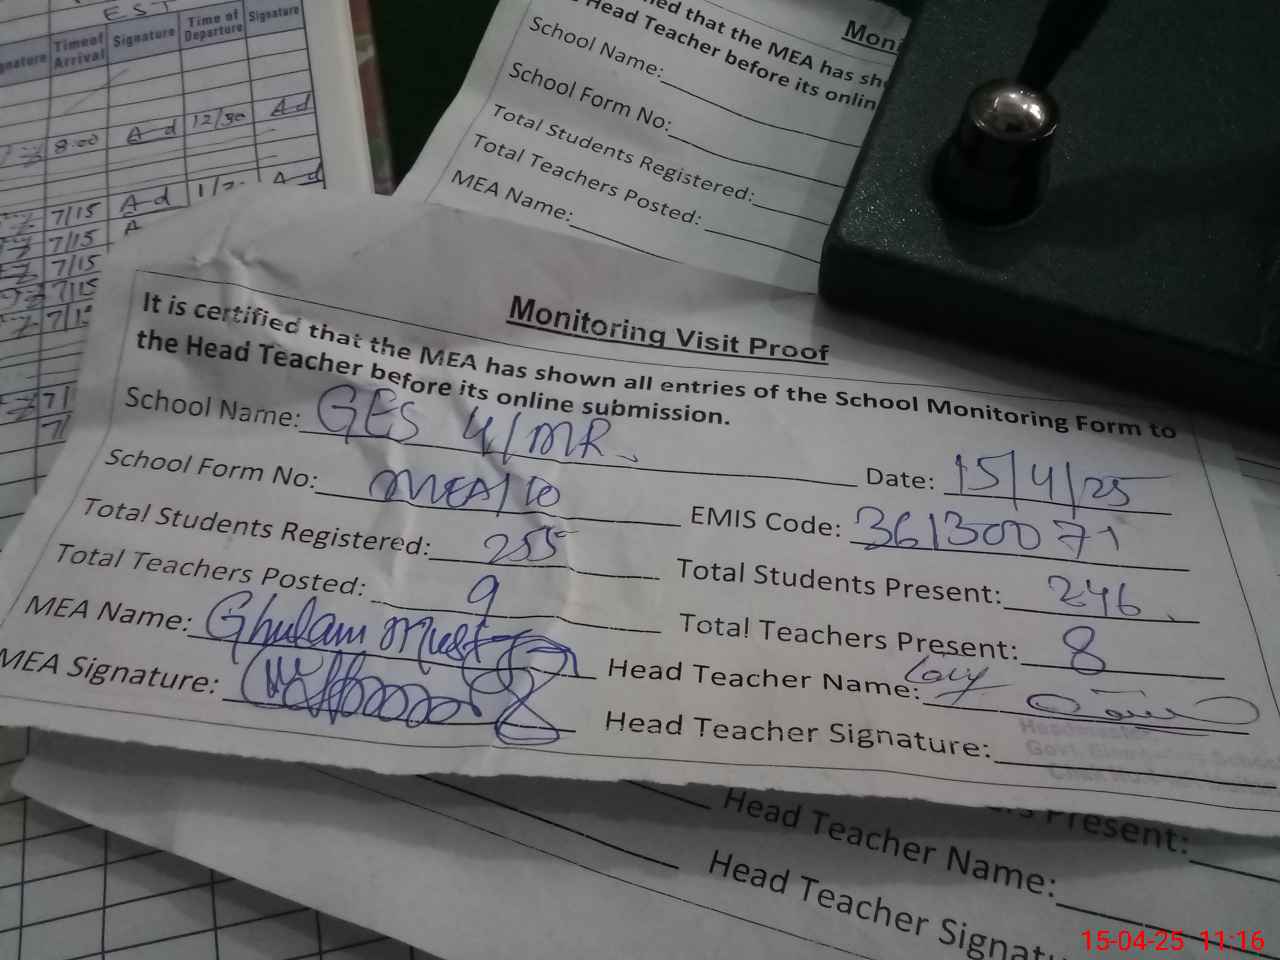 EST
Time of Arrival Signature Time of Departure Signature
8:00 A d 12/30 A d
7/15 A d
7/15 A
7/15
7/15
Head Teacher before its online
School Name:
School Form No:
Total Students Registered:
Total Teachers Posted:
MEA Name:
Monitoring Visit Proof
It is certified that the MEA has shown all entries of the School Monitoring Form to
the Head Teacher before its online submission.
School Name: GES 4/MR Date: 15/4/25
School Form No: MEA/10 EMIS Code: 36130071
Total Students Registered: 255 Total Students Present: 246
Total Teachers Posted: 9 Total Teachers Present: 8
MEA Name: Ghulam Must Head Teacher Name:
MEA Signature: Head Teacher Signature:
Headmaster
Present:
Head Teacher Name:
Head Teacher
15-04-25 11:16